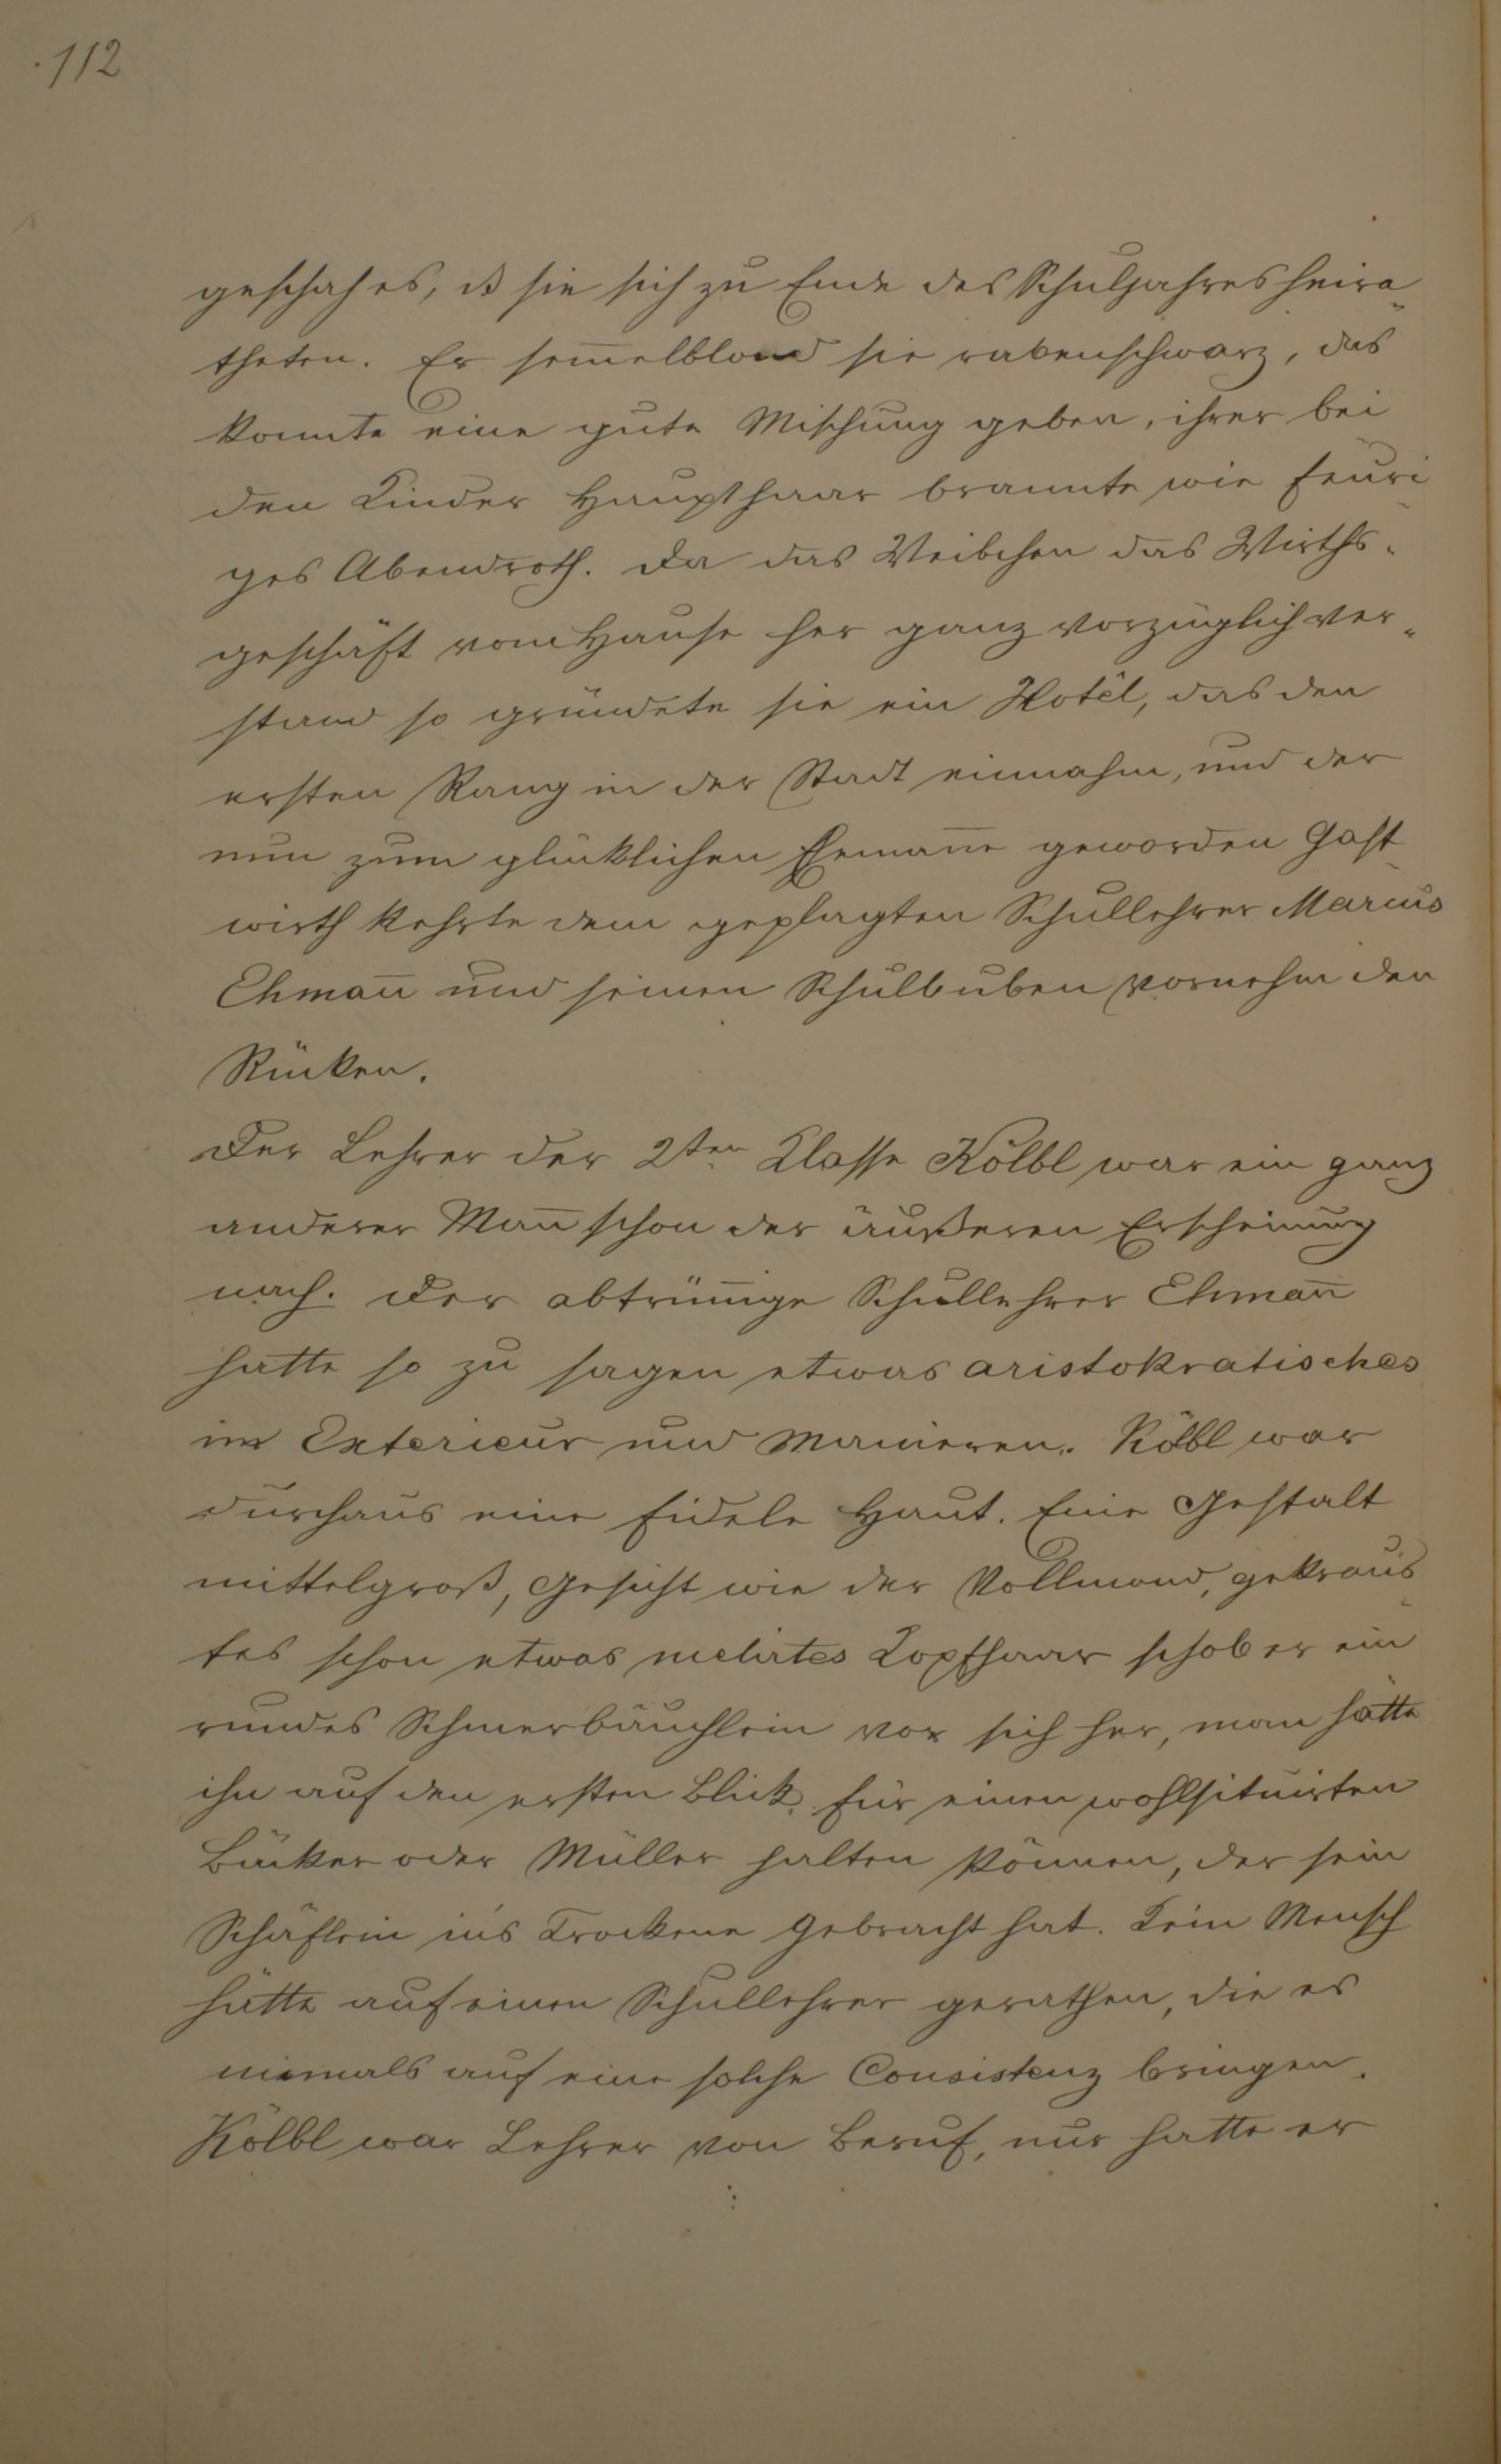 112
geschah es, daß sie sich zu Ende des Schuljahres heira-
theten. Er sem̄elblond sie rabenschwarz, das
konnte eine gute Mischung geben, ihrer bei
den Kinder Haupthaar brannte wie feuri-
ges Abendroth. Da das Weibchen das Wirths-
geschäft vom Hause her ganz vorzüglich ver-
stand so gründete sie ein Hotêl, das den
ersten Rang in der Stadt einnahm, und der
nun zum glücklichen Ehman̄e geworden Gast-
wirth kehrte dem geplagten Schullehrer Marcus
Ehman̄ und seinen Schulbuben vornehm den
Rücken.
Der Lehrer der 2ten Klasse Kölbl war ein ganz
anderer Man̄ schon der äußeren Erscheinung
nach. Der abtrün̄ige Schullehrer Ehman̄
hatte so zu sagen etwas aristokratisches
im Exterieur und Manieren. Kölbl war
durchaus eine fidele Haut. Eine Gestalt
mittelgroß, Gesicht wie der Vollmond, gekraus-
tes schon etwas melirtes Kopfhaar schob er ein
rundes Schmerbäuchlein vor sich her, man hätte
ihn auf den ersten Blick für einen wohlsituirten
Bäcker oder Müller halten können, der sein
Schäflein in's Trockene gebracht hat. Kein Mensch
hätte auf einen Schullehrer gerathen, die es
niemals auf eine solche Consistenz bringen.
Kölbl war Lehrer von Beruf, nur hatte er